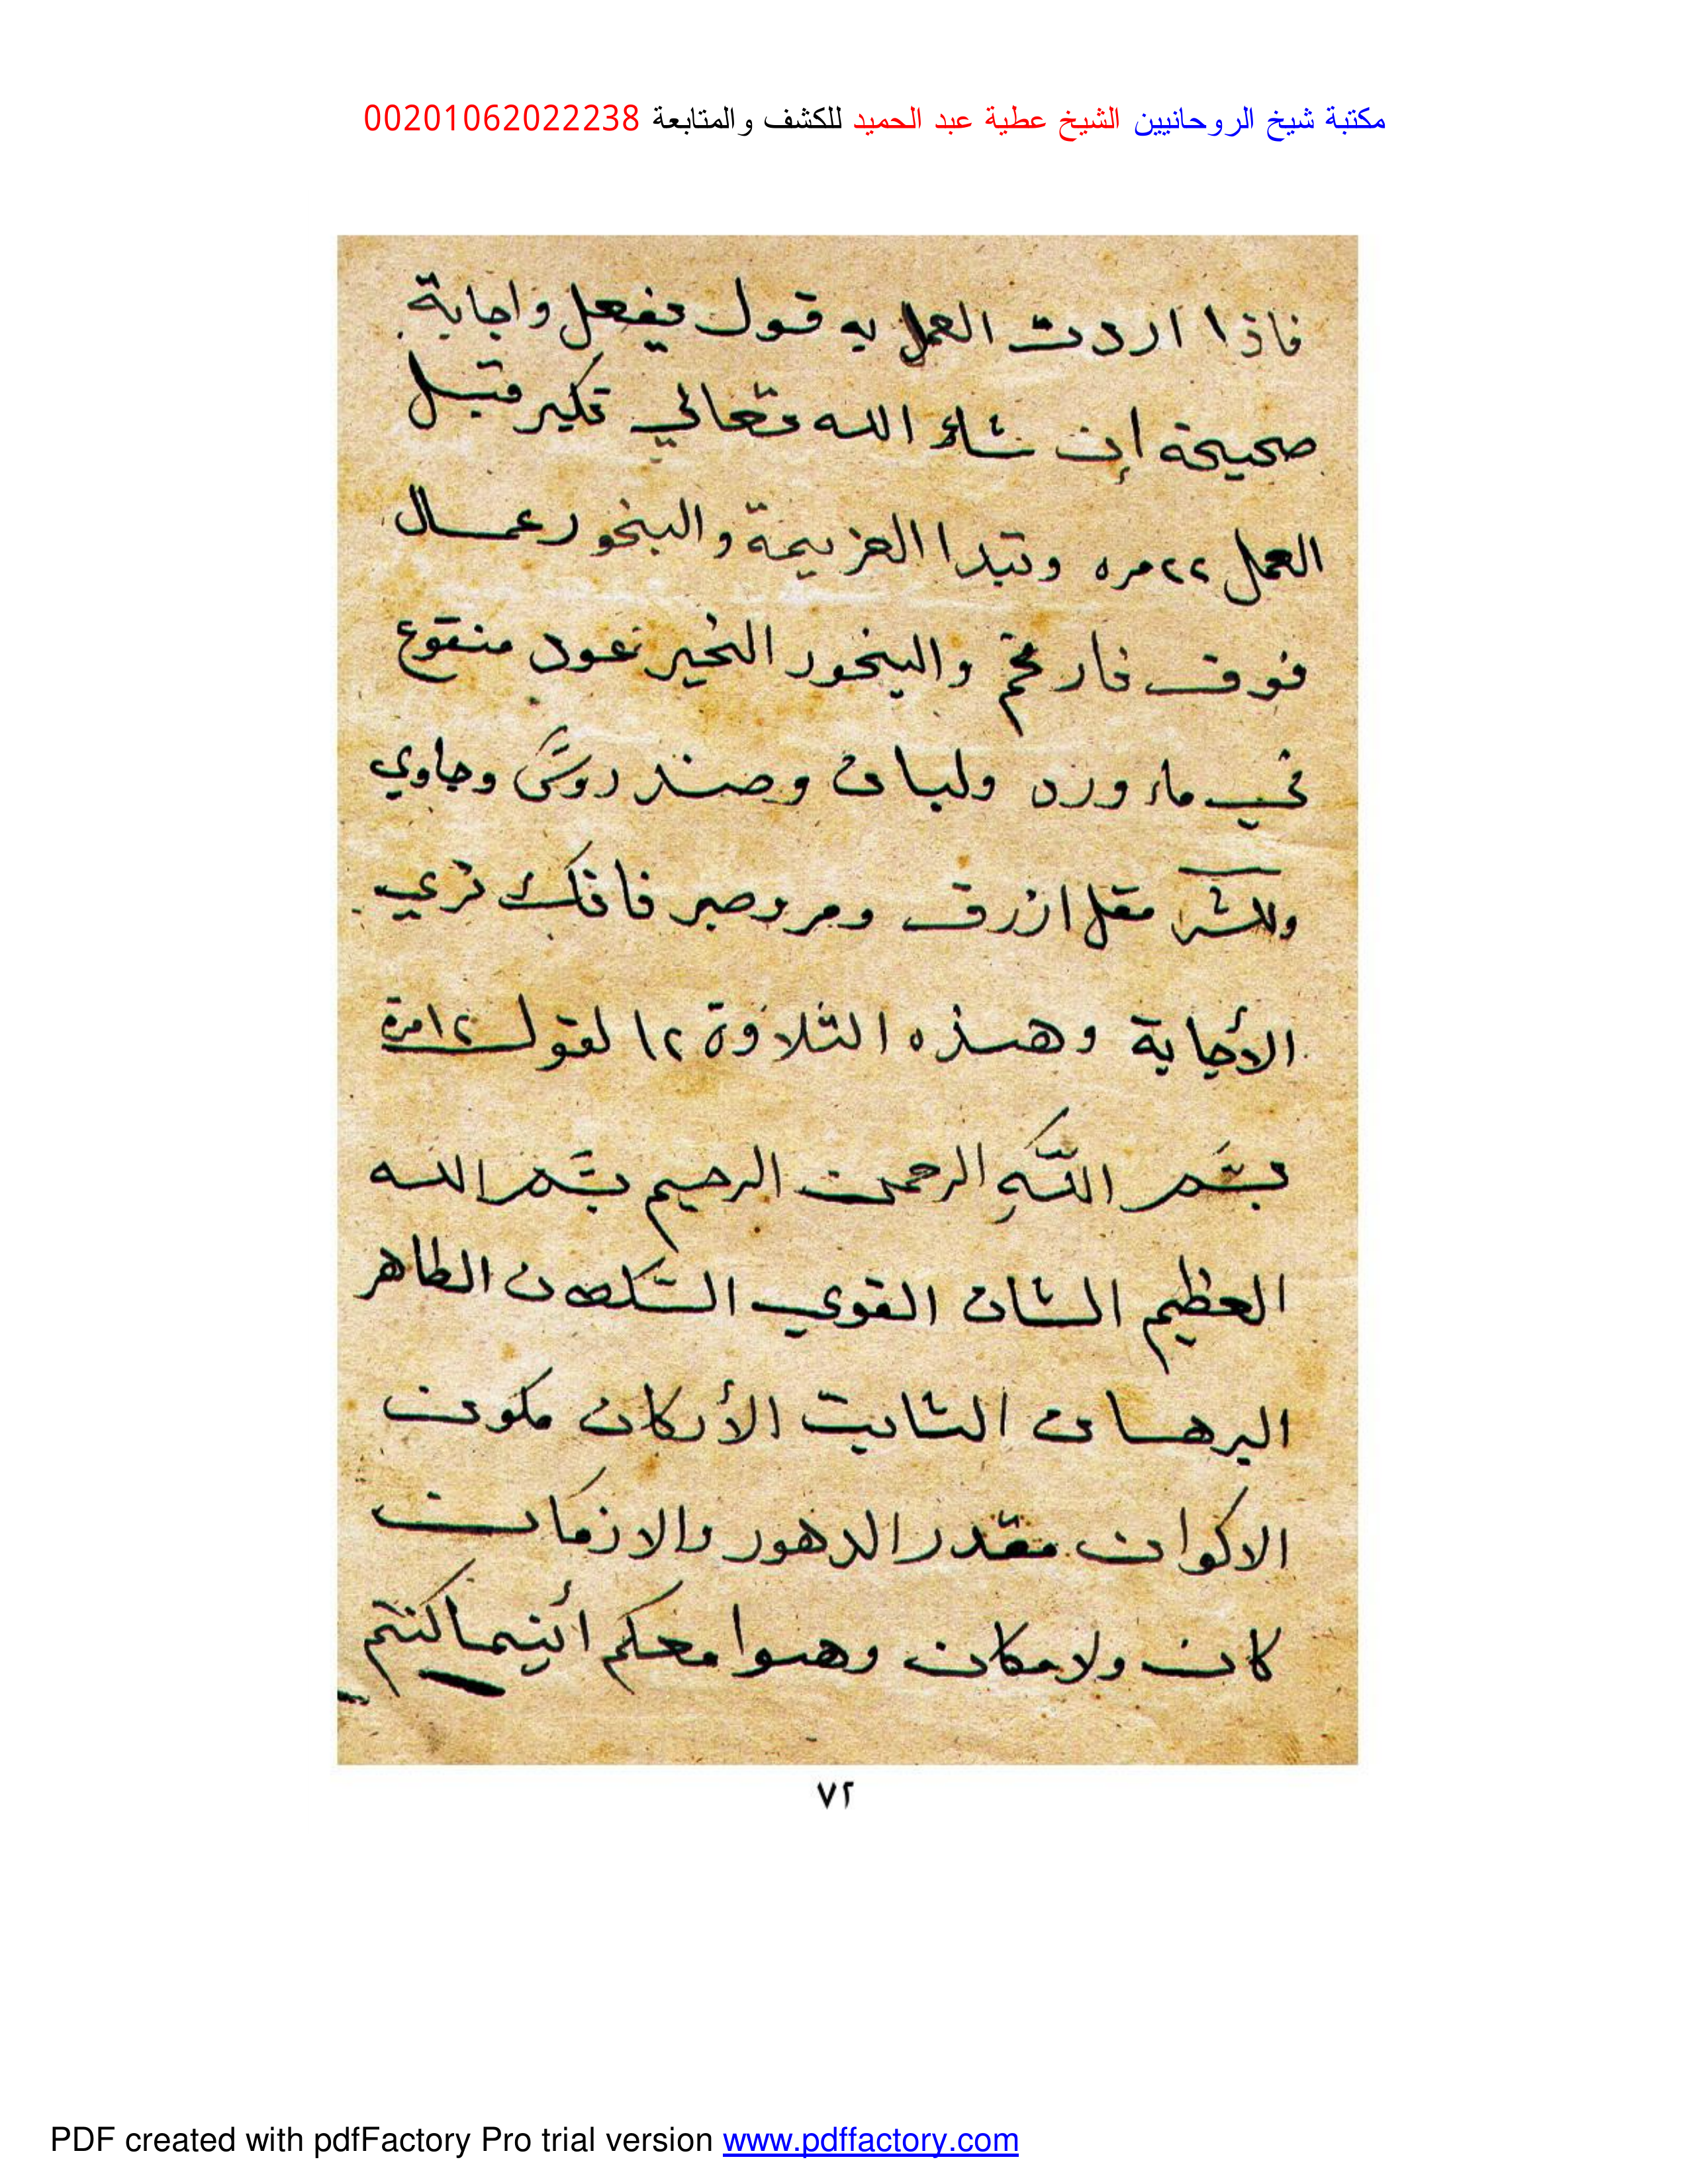 مكتبة شيخ الروحانيين الشيخ عطية عبد الحميد للكشف والمتابعة 00201062022238
فاذا اردت العمل به قول يفعل واجابة
صحيحة إن شاء الله تعالي تكير قبل
العمل ٢٢ مره وتبدا العزيمة والبخور عمال
فوق نار فحم والبخور الخير عود منقوع
في ماء ورد ولبان وصندروس وجاوي
وللشر مقل ازرق ومر وصبر فانك تري
الأجابة وهذه التلاوة ١٢ لقول ١٢ مرة
بسم الله الرحمن الرحيم بسم الله
العظيم الشان القوي السلطان الطاهر
البرهان الثابت الأركان مكون
الاكوان مقدر الدهور والازمان
كان ولامكان وهوا معكم أينما كنتم
٧٢
PDF created with pdfFactory Pro trial version www.pdffactory.com